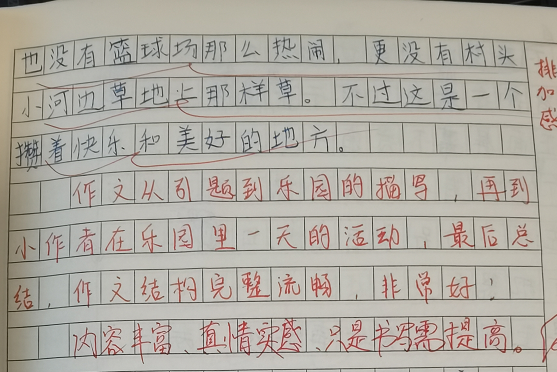 也没有篮球场那么热闹，更没有村头
小河边草地上那样草。不过这是一个
攒着快乐和美好的地方。
作文从引题到乐园的描写，再到
小作者在乐园里一天的活动，最后总
结，作文结构完整流畅，非常好！
内容丰富、真情实感、只是书写需提高。
排
加
感